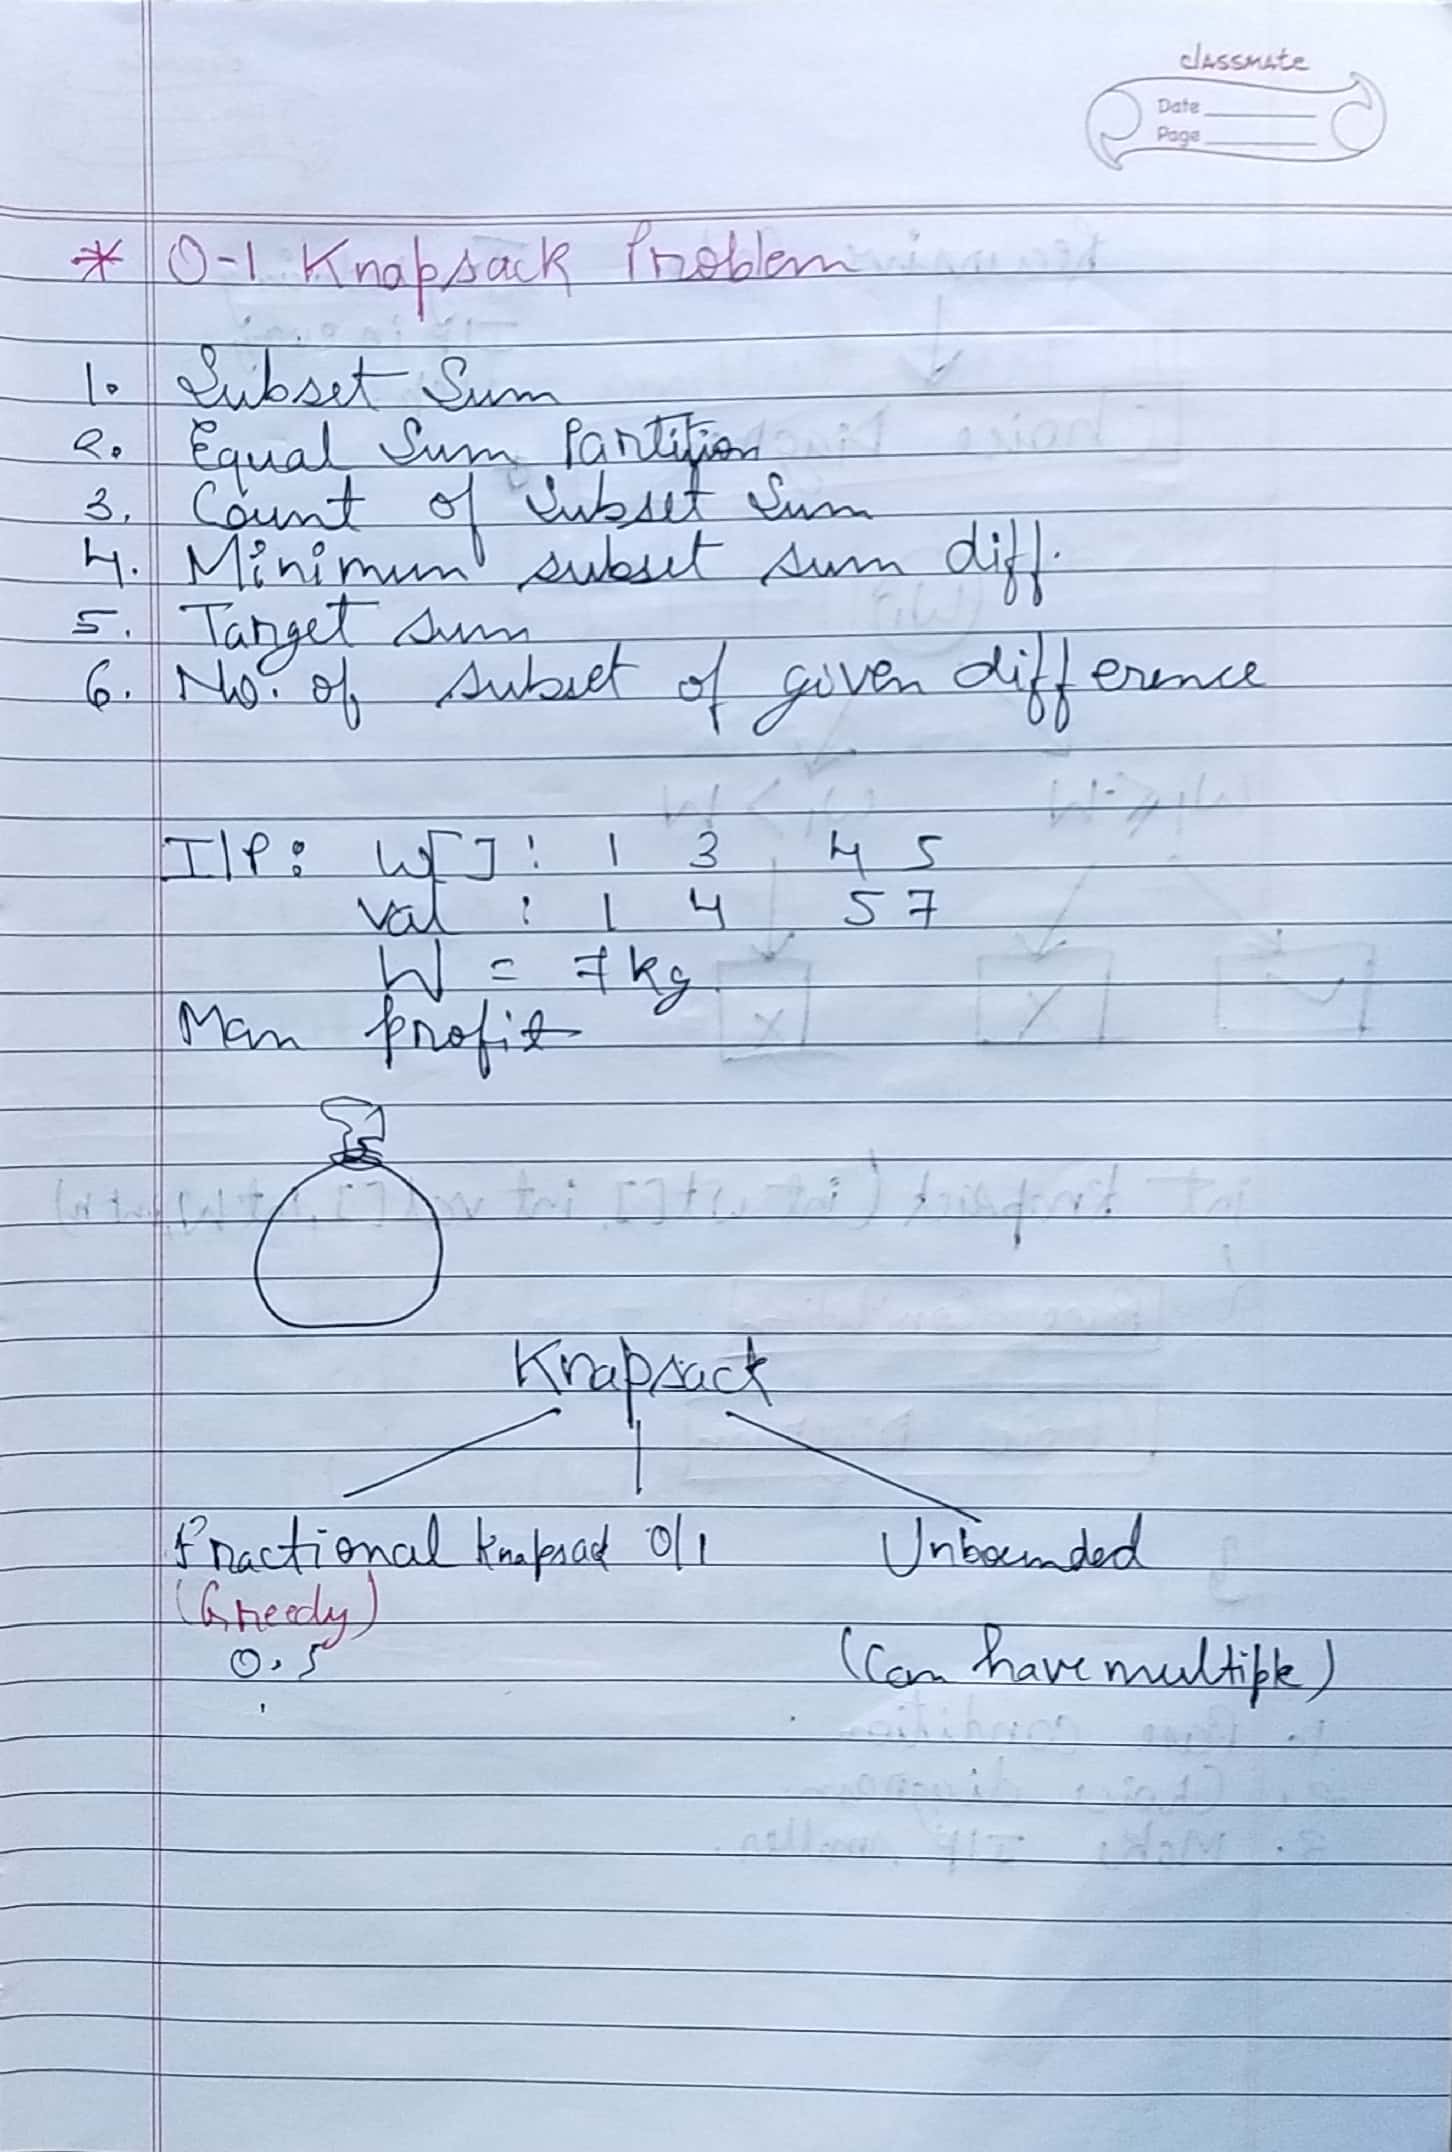 classmate
Date
Page
* 0-1 Knapsack Problem
1. Subset Sum
2. Equal Sum Partition
3. Count of Subset Sum
4. Minimum subset sum diff.
5. Target sum
6. No. of subset of given difference
I/P: W[]: 1 3 4 5
val : 1 4 5 7
W = 7kg
Man profit
Knapsack
Fractional Knapsack 0/1 Unbounded
(Greedy)
0.5 (can have multiple)